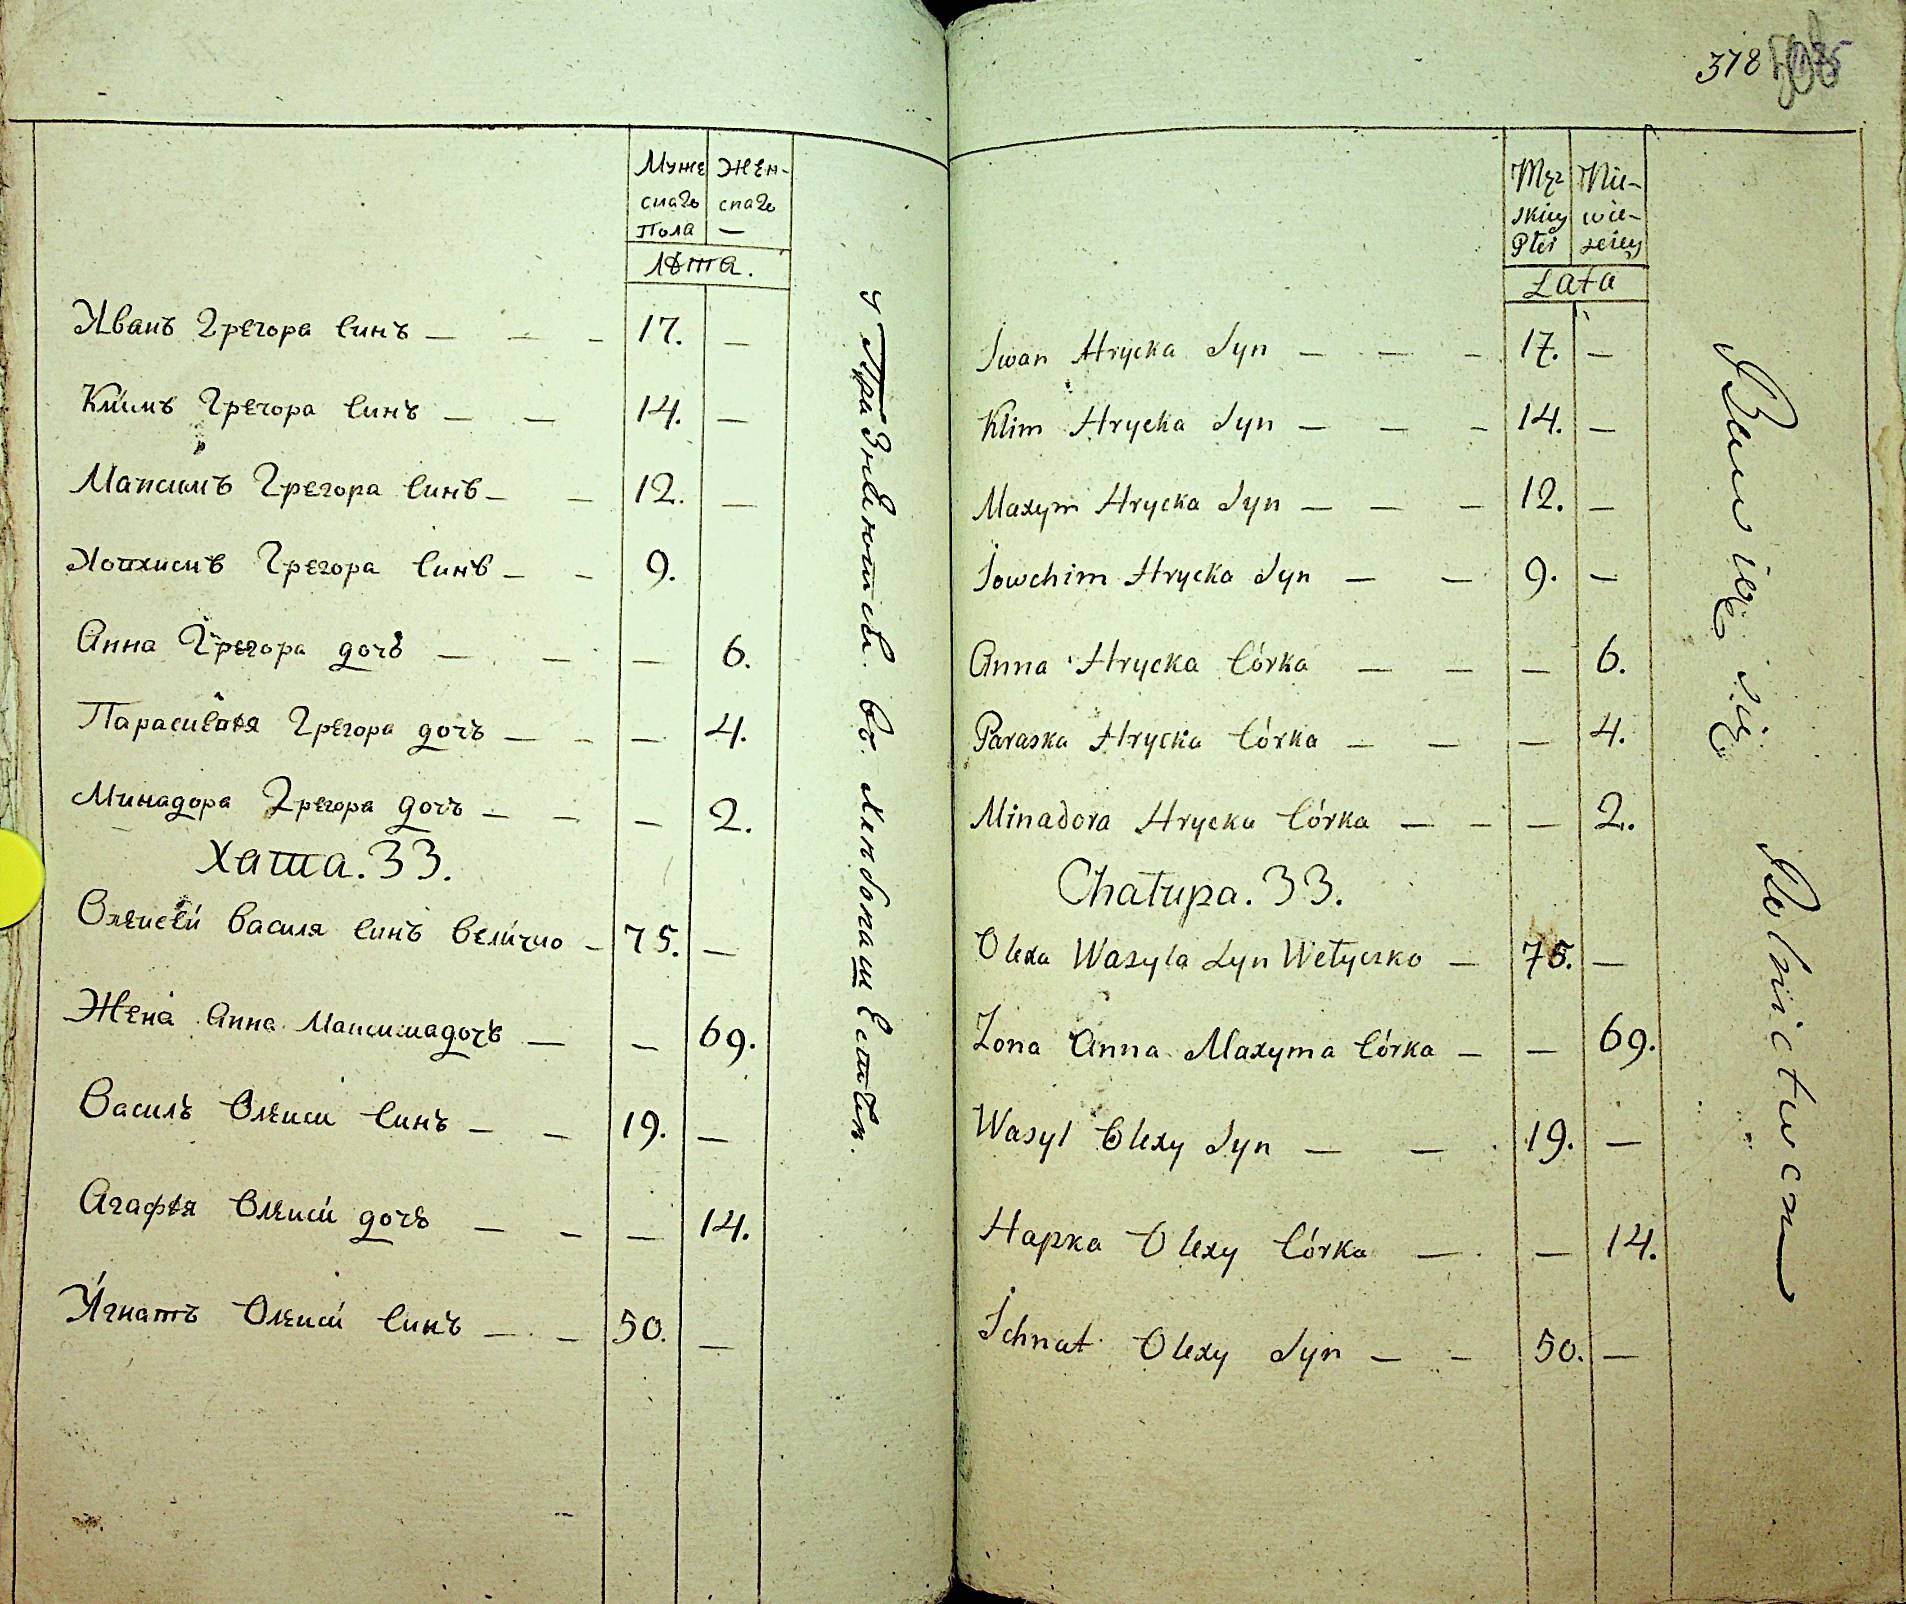 Муже Жен-
скаго скаго
Пола —
Лѣта.
Иванъ Грегора Синъ — — — 17. —
Климъ Грегора Синъ — — 14. —
Максимъ Грегора Синъ — — 12. —
Иоахимъ Грегора Синъ — — 9.
Анна Грегора дочъ — — — 6.
Параскевія Грегора дочъ — — — 4.
Минадора Грегора дочъ — — — 2.
Хата. 33.
Олексѣй Василя Синъ Величко — 75. —
Жена Анна Максима дочъ — — 69.
Василъ Олекси Синъ — — 19. —
Агафія Олекси дочъ — — — 14.
Игнатъ Олекси Синъ — — 50. —
378
Męz Nie-
skiey wie-
Płci sciey
Lata
Iwan Hrycka Syn — — — 17. —
Klim Hrycka Syn — — — 14. —
Maxym Hrycka Syn — — — 12. —
Iowchim Hrycka Syn — — 9. —
Anna Hrycka Córka — — — 6.
Paraska Hrycka Córka — — — 4.
Minadora Hrycka Córka — — — 2.
Chałupa. 33.
Olexa Wasyla Syn Wełyczko — 75. —
Zona Anna Maxyma Córka — — 69.
Wasyl Olexy Syn — — 19. —
Hapka Olexy Córka — — 14.
Ichnat Olexy Syn — — 50. —
Bawią się Rolnictwem